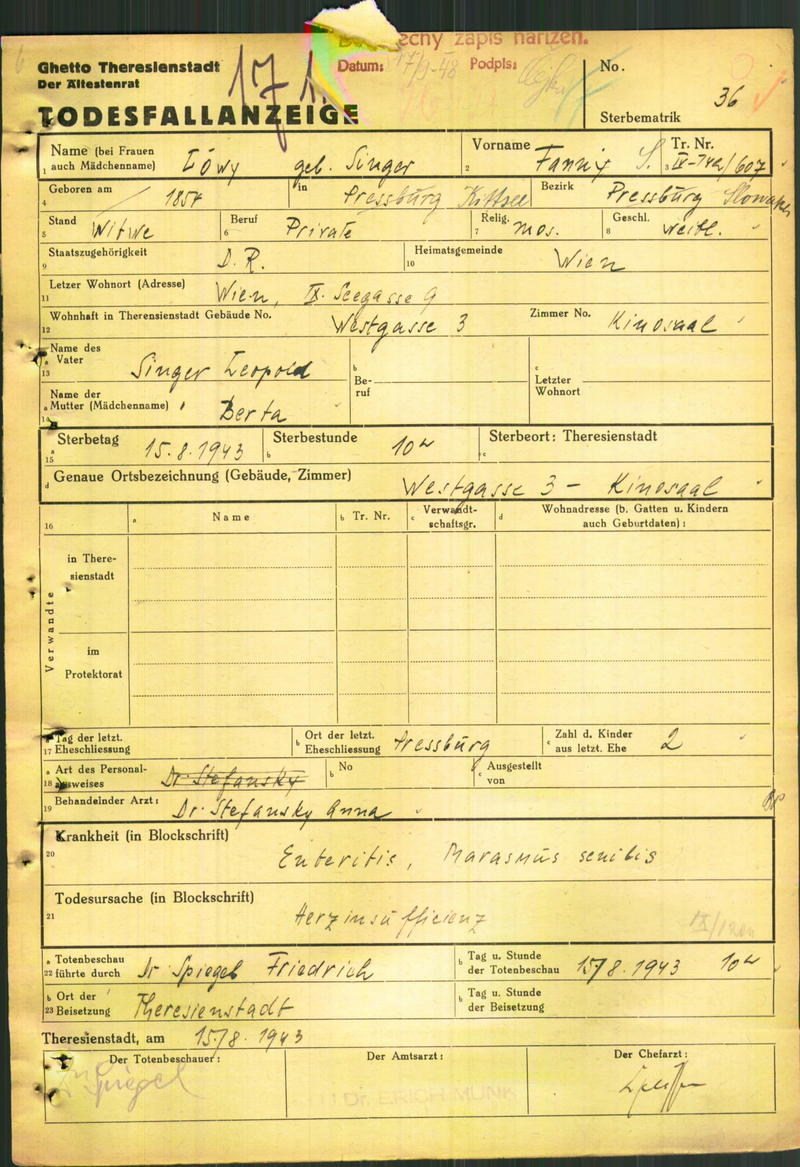 Dodatečný zápis nařízen.
Datum: 17/1-48 Podpis:
Ghetto Theresienstadt
Der Ältestenrat
171.
TODESFALLANZEIGE
No.
Sterbematrik 36
1 Name (bei Frauen auch Mädchenname) Löwy geb. Singer
2 Vorname Fanny S.
3 Tr. Nr. IV-14a/607
4 Geboren am 1857 in Pressburg Kittsee Bezirk Pressburg Slowakei
5 Stand Witwe 6 Beruf Private 7 Relig. mos. 8 Geschl. weibl.
9 Staatszugehörigkeit D. R. 10 Heimatsgemeinde Wien
11 Letzer Wohnort (Adresse) Wien, IX. Seegasse 9
12 Wohnhaft in Theresienstadt Gebäude No. Westgasse 3 Zimmer No. Kinosaal
13 a Name des Vater Singer Leopold b Beruf c Letzter Wohnort
14 a Name der Mutter (Mädchenname) Berta
15 a Sterbetag 15.8.1943 b Sterbestunde 10 h c Sterbeort: Theresienstadt
d Genaue Ortsbezeichnung (Gebäude, Zimmer) Westgasse 3 - Kinosaal
16 a Name b Tr. Nr. c Verwandt-schaftsgr. d Wohnadresse (b. Gatten u. Kindern auch Geburtdaten):
Verwandte
in There-sienstadt
im Protektorat
17 a Tag der letzt. Eheschliessung b Ort der letzt. Eheschliessung Pressburg c Zahl d. Kinder aus letzt. Ehe 2
18 a Art des Personal-ausweises Dr. Stefansky b No c Ausgestellt von
19 Behandelnder Arzt: Dr. Stefansky Anna
20 Krankheit (in Blockschrift) Enteritis, Marasmus senilis
21 Todesursache (in Blockschrift) Herzinsufficienz
22 a Totenbeschau führte durch Dr Spiegel Friedrich b Tag u. Stunde der Totenbeschau 15/8.1943 10 h
23 b Ort der Beisetzung Theresienstadt b Tag u. Stunde der Beisetzung
Theresienstadt, am 15/8.1943
Der Totenbeschauer: Der Amtsarzt: Der Chefarzt:
Dr Spiegel
Dr. ERICH MUNK